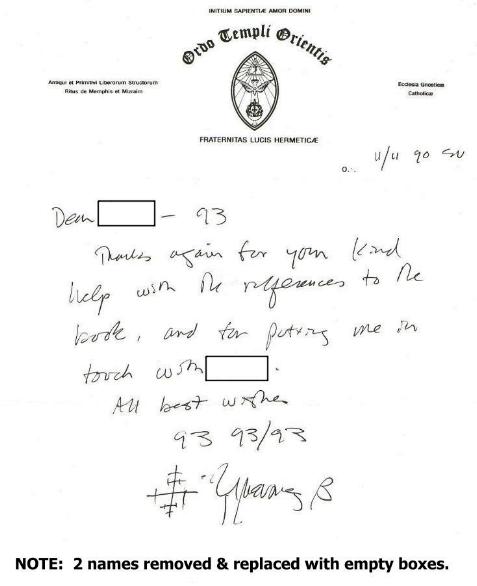 INITIUM SAPIENTIÆ AMOR DOMINI
Ordo Templi Orientis
Antiqui et Primitivi Liberorum Structorum
Ritus de Memphis et Mizraim
Ecclesia Gnostica
Catholicæ
FRATERNITAS LUCIS HERMETICÆ
O∴ 4/4 90
Dear - 93
Thanks again for your kind
help with the references to the
book, and for putting me in
touch with .
All best wishes
93 93/93
NOTE: 2 names removed & replaced with empty boxes.